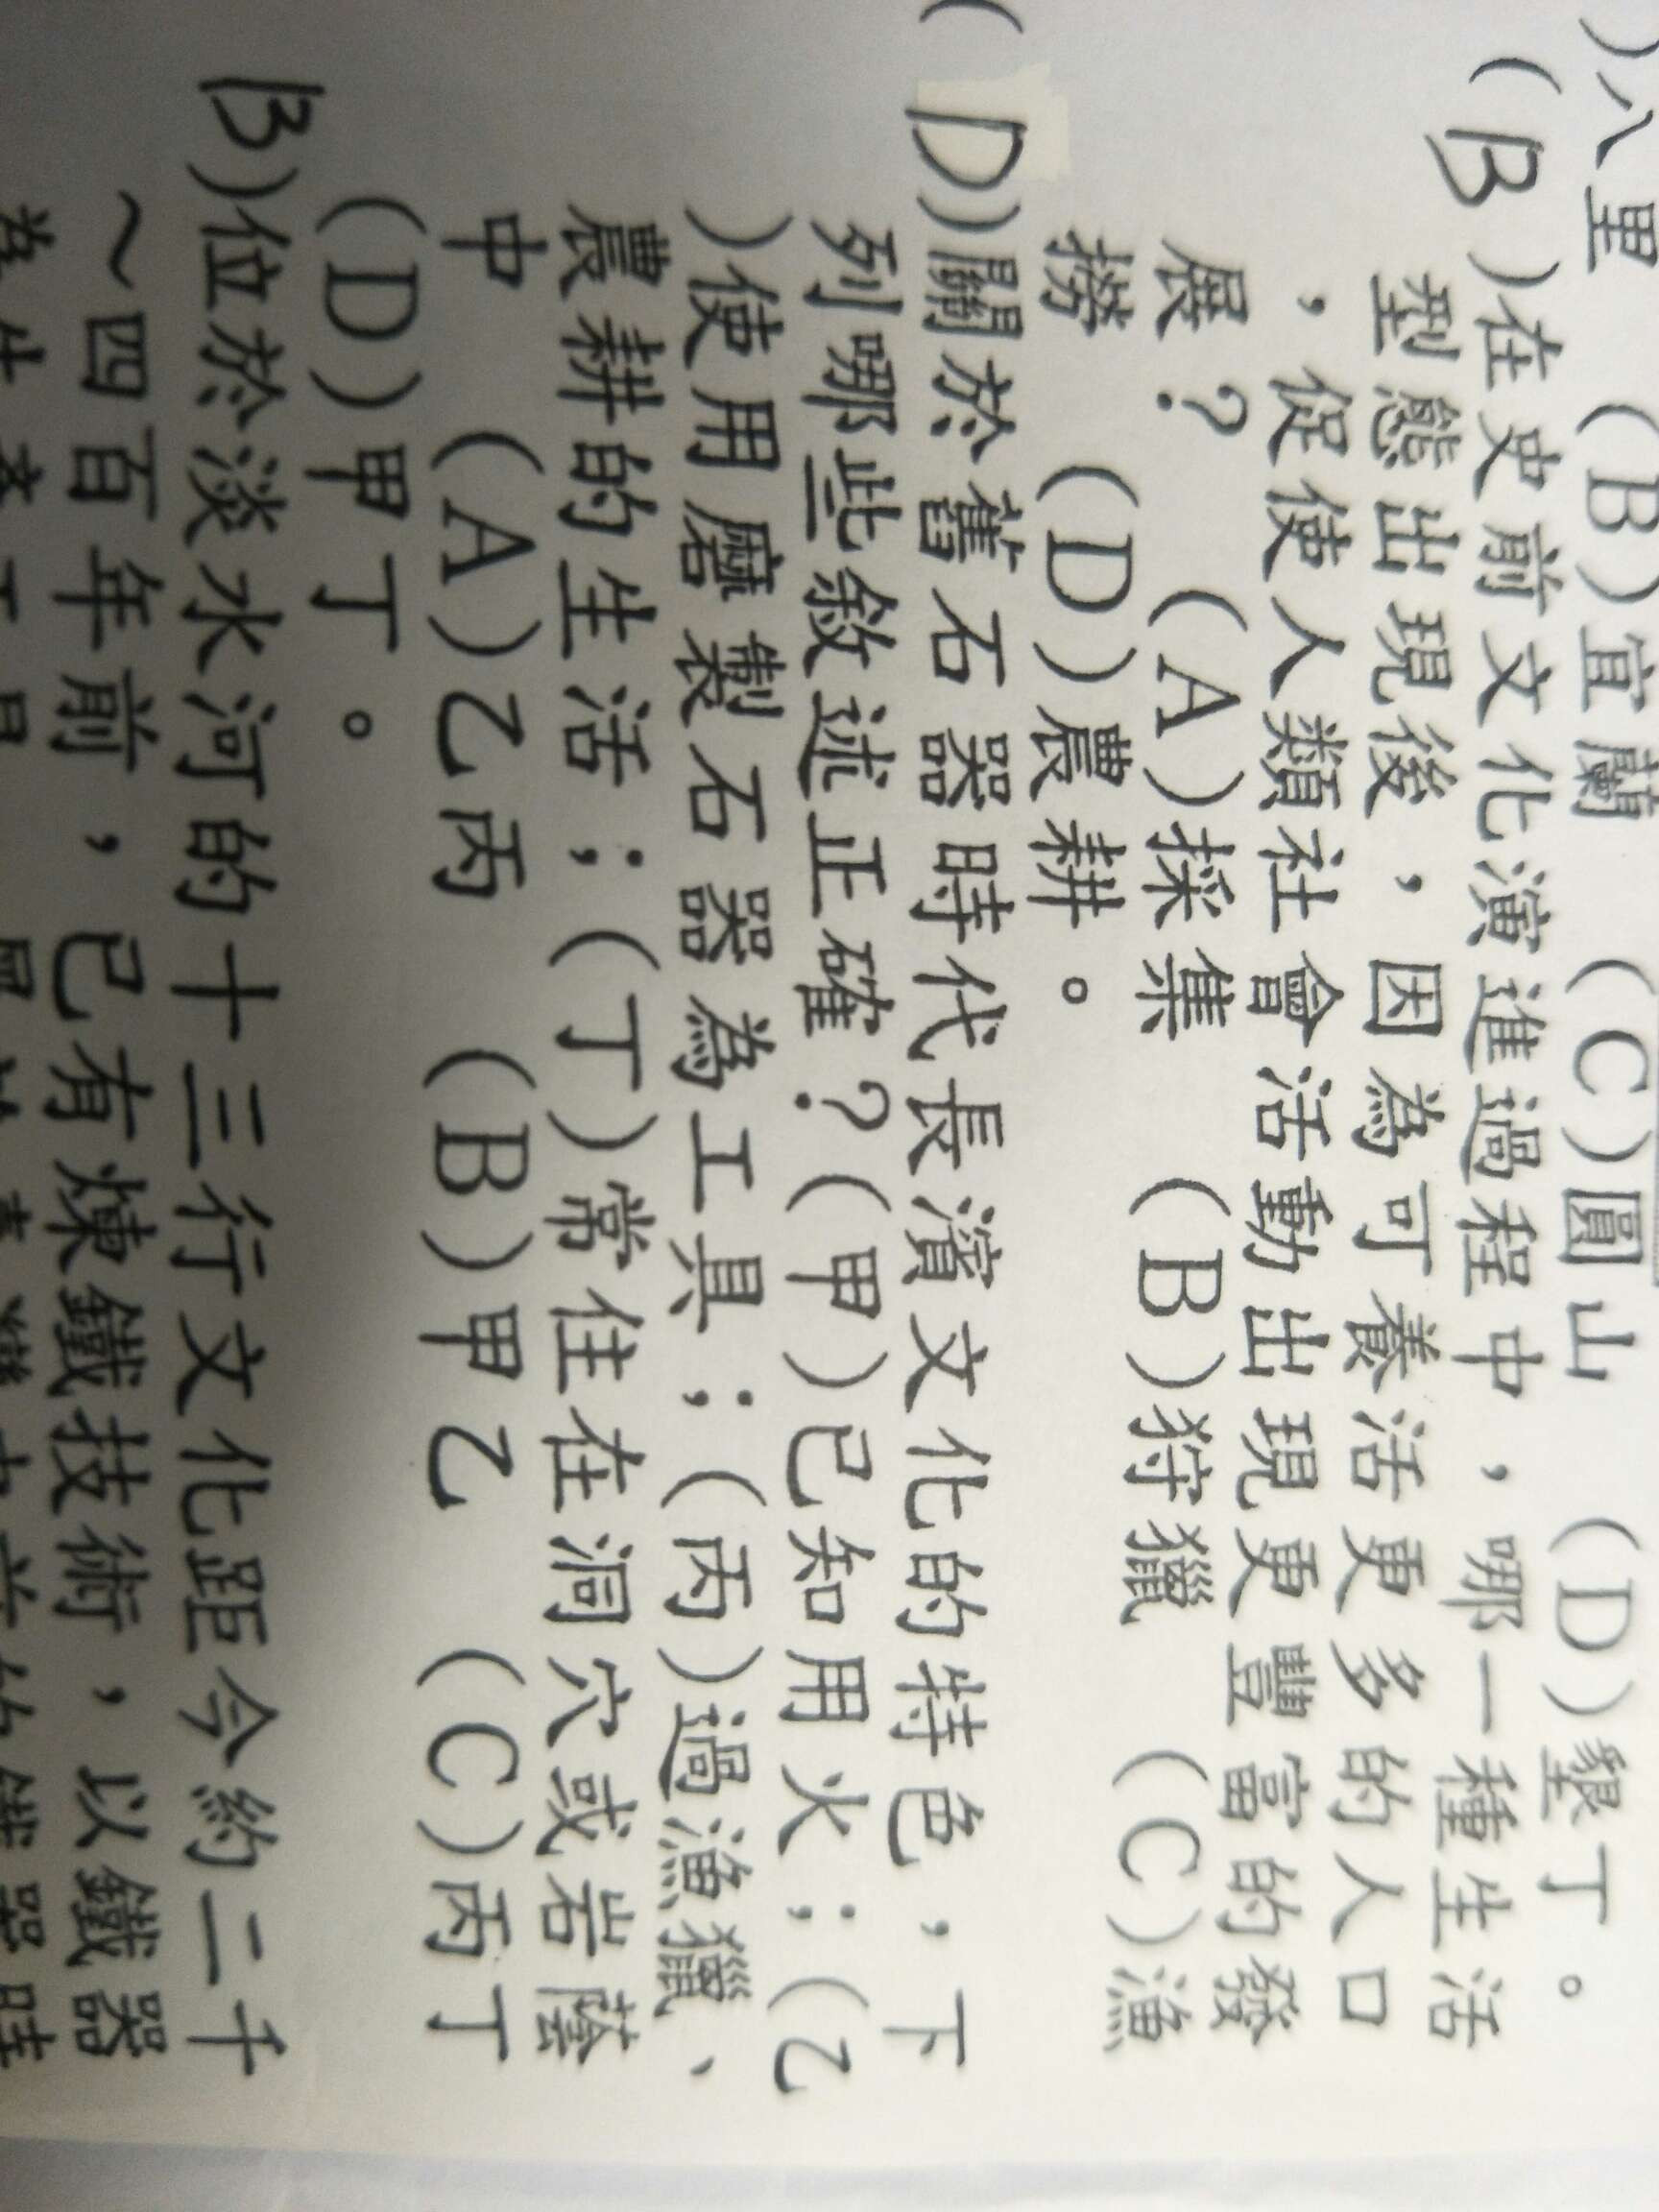 )八里　(B)宜蘭　(C)圓山　(D)墾丁。
(B)在史前文化演進過程中，哪一種生活
型態出現後，因為可養活更多的人口
，促使人類社會活動出現更豐富的發
展？　(A)採集　(B)狩獵　(C)漁
撈　(D)農耕。
(D)關於舊石器時代長濱文化的特色，下
列哪些敘述正確？(甲)已知用火；(乙
)使用磨製石器為工具；(丙)過漁獵、
農耕的生活；(丁)常住在洞穴或岩蔭
中　(A)乙丙　(B)甲乙　(C)丙丁
(D)甲丁。
B)位於淡水河的十三行文化距今約二千
～四百年前，已有煉鐵技術，以鐵器